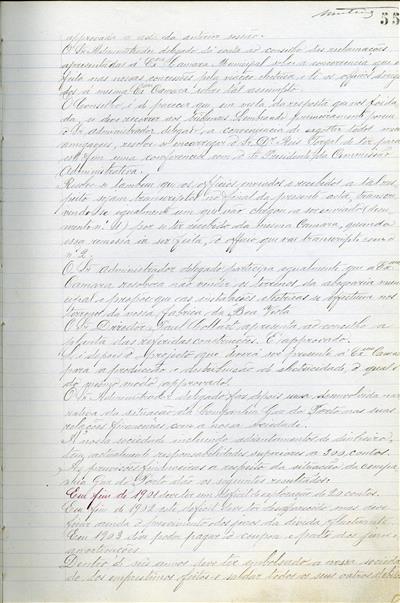 55
approvada a acta da anterior sessão.
O Sr. Administrador delegado dá conta ao conselho das reclamações
apresentadas á Exma Camara Municipal sobre a concorrencia que é
feita nas nossas concessões pela viação electrica e lê os officios dirigi-
dos á mesma Exma Camara sobre tal assumpto.
O Conselho é de parecer que, em vista da resposta que nos foi da-
da, se deve recorrer aos tribunaes. Lembrando primeiramente porem
o Sr. administrador delegado a conveniencia de esgotar todos os meios
amigaveis, resolve-se encarregar o Sr. Dr. Reis
uma conferencia com o Sr. Presidente da Commissão
Administrativa.
Resolve-se tambem que os officios enviados e recebidos a tal res-
peito sejam transcriptos no final da presente acta, transcre-
vendo-se egualmente um que não chegou a ser enviado (docu-
mento nº 1) por se ter recebido da mesma Camara, quando
essa remessa ia ser feita, o officio que vai transcripto com o
nº 2.
O Sr. administrador delegado participa egualmente que a Exma
Camara resolveu não ceder os terrenos da abegoaria muni-
cipal e propõe que as installações electricas se effectuem nos
terrenos da nossa fabrica da Boa Vista.
O Sr. Director Paul apresenta ao conselho a
planta das referidas construcções. É approvado.
Lê depois o projecto que deverá ser presente á Exma Camara
para a producção e distribuição de electricidade, o qual é
do mesmo modo approvado.
O Sr. Administrador delegado faz depois uma desenvolvida nar-
rativa da situação da Companhia Gaz do Porto nas suas
relações financeiras com a nossa sociedade.
A nossa sociedade incluindo adiantamentos de dinheiro,
tem actualmente responsabilidades superiores a 300 contos.
As previsões financeiras a respeito da situação da compa-
nhia Gaz do Porto dão os seguintes resultados:
Em fim de 1901 deve ter um deficit de exploração de 20 contos.
Em fim de 1902 este deficit deve ter desapparecido mas deve
ficar ainda o pagamento dos juros da divida fluctuante.
Em 1903 deve poder pagar o coupon e parte dos juros e
amortisações.
Dentro de seis annos deve ter embolsado a nossa socieda-
de dos emprestimos feitos e saldar todos os seus outros debitos